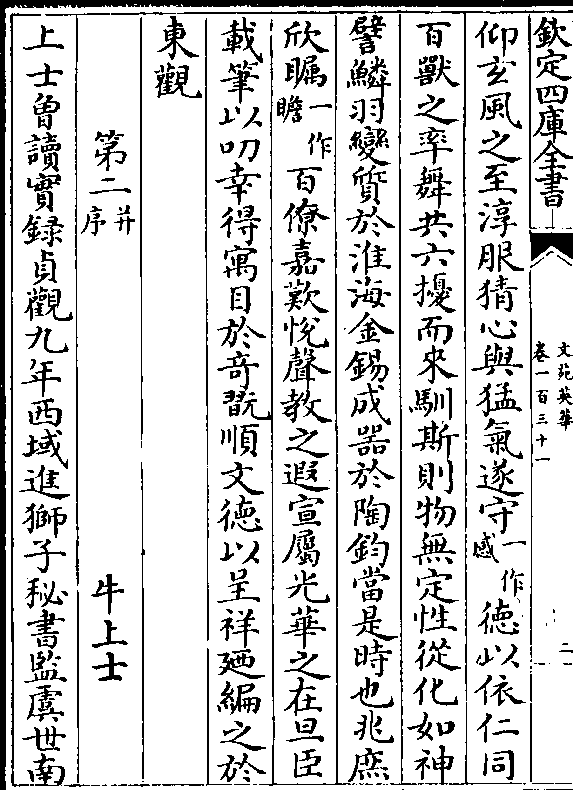 欽定四庫全書
文苑英華
卷一百三十一
二
仰玄風之至淳服猜心與猛氣遂守一作感德以依仁同
百獸之率舞共六擾而來馴斯則物無定性從化如神
譬鱗羽變質於淮海金錫成器於陶鈞當是時也兆庶
欣矚一作瞻百僚嘉歎悅聲教之遐宣屬光華之在旦臣
載筆以叨幸得寓目於奇翫順文德以呈祥廼編之於
東觀
第二并序
牛上士
上士曾讀實録貞觀九年西域進獅子秘書監虞世南